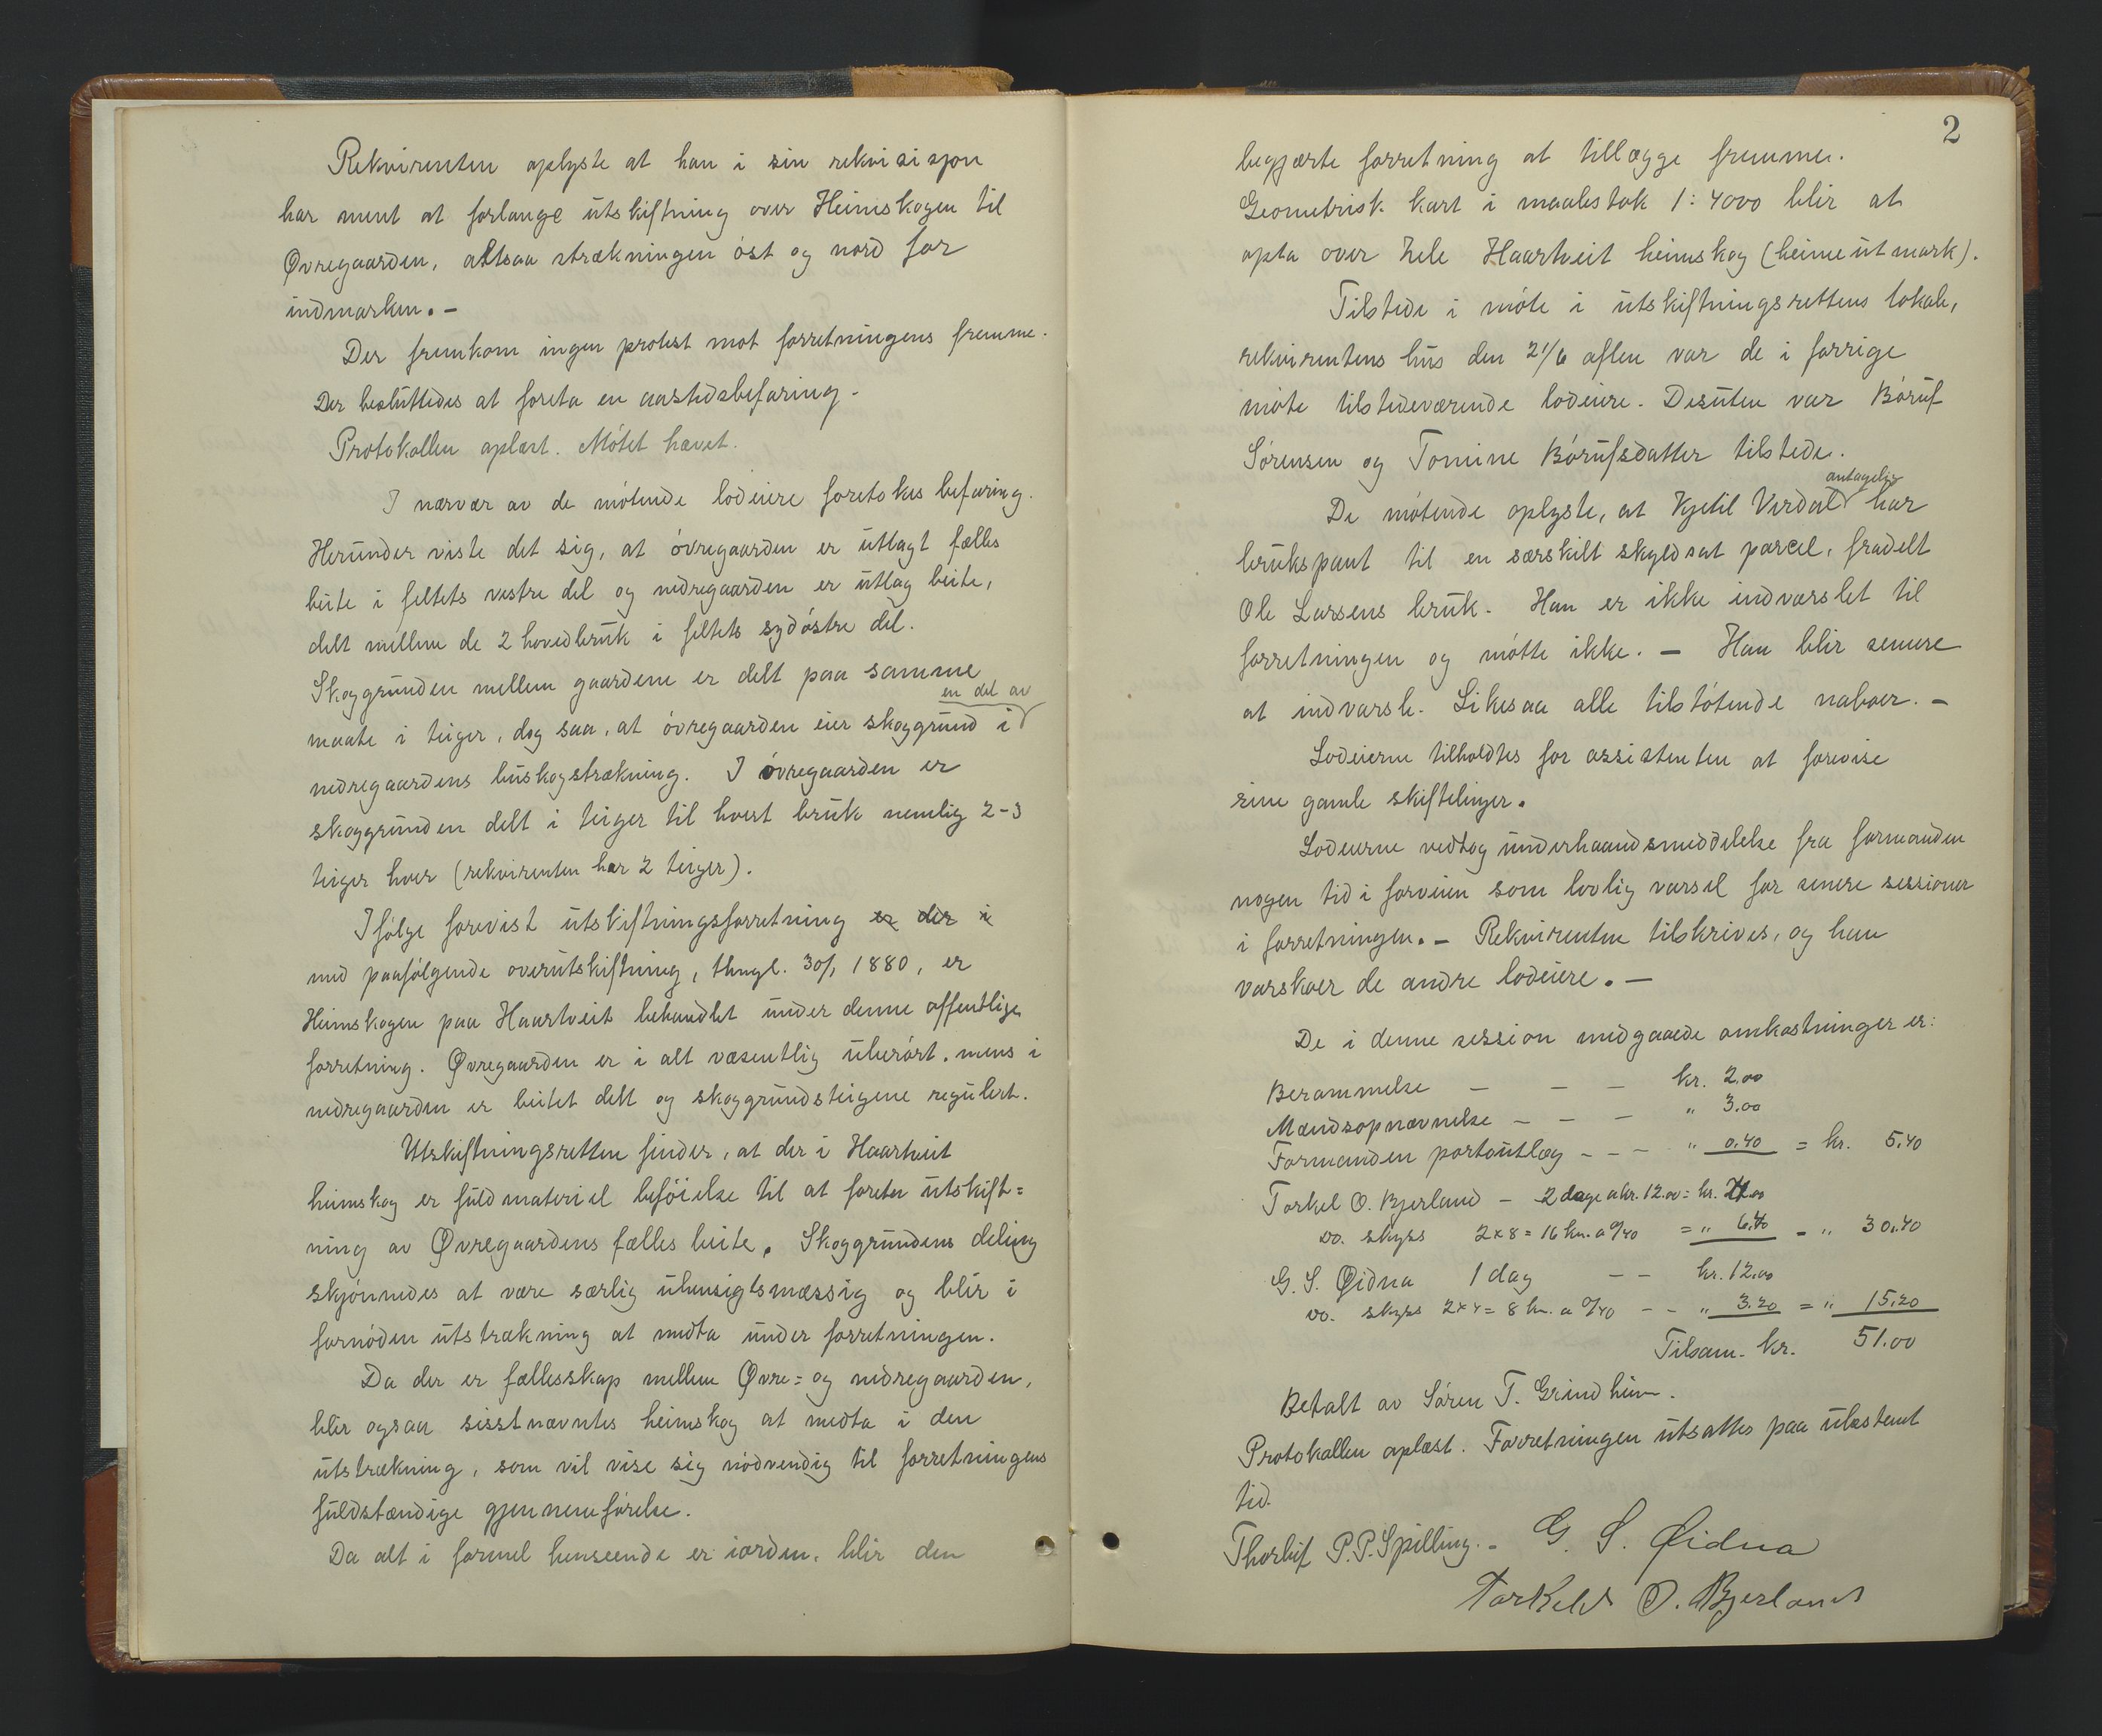 Rekvirenten oplyste at han i sin rekvisisjon
har ment at forlange utskiftning over Heimskogen til
Øvregaarden, altsaa strækningen øst og nord for
indmarken. -
Der fremkom ingen protest mot forretningens fremme.
Der besluttedes at foreta en aastedsbefaring.
Protokollen oplæst. Møtet hævet.
I nærvær av de møtende lodeiere foretokes befaring.
Herunder viste det sig, at øvregaarden er utlagt fælles
beite i feltets vestre del og nedregaarden er utlag beite,
delt mellem de 2 hovedbruk i feltets sydøstre del.
Skoggrunden mellem gaardene er delt paa samme
en del av
maate i teiger, dog saa, at øvregaarden eier skoggrund i
nedregaardens buskogstrækning. I øvregaarden er
skoggrunden delt i teiger til hvert bruk nemlig 2-3
teiger hver (rekvirenten har 2 teiger).
Ifølge forevist utskiftningsforretning er der i
med paafølgende overutskiftning, thingl. 30/1 1880, er
Heimskogen paa Haartveit behandlet under denne offentlige
forretning. Øvregaarden er i alt væsentlig uberørt, mens i
nedregaarden er beitet delt og skoggrundsteigene regulert.
Utskiftningsretten finder, at der i Haartveit
heimskog er fuld materiel beføielse til at foreta utskift=
ning av Øvregaardens fælles beite. Skoggrundens deling
skjønnedes at være særlig uhensigtsmæssig og blir i
fornøden utstrækning at medta under forretningen.
Da der er fællesskap mellem Øvre= og nedregaarden,
blir ogsaa sisstnævntes heimskog at medta i den
utstrækning, som vil vise sig nødvendig til forretningens
fuldstændige gjennemførelse.
Da alt i formel henseende er iorden, blir den
2
begjærte forretning at tillægge fremme.
Geometrisk kart i maalestok 1:4000 blir at
opta over hele Haartveit heimskog (heimeutmark).
Tilstede i møte i utskiftningsrettens lokale,
rekvirentens hus den 21/6 aften var de i forrige
møte tilstedeværende lodeiere. Desuten var Børuf
Sørensen og Tomine Børufsdatter tilstede.
antagelig
De møtende oplyste, at Kjetil Verdal har
brukspant til en særskilt skyldsat parcel, fradelt
Ole Larsens bruk. Han er ikke indvarslet til
forretningen og møtte ikke. - Han blir senere
at indvarsle. Likesaa alle tilstøtende naboer. -
Lodeierne tilholdtes for assistenten at forevise
sine gamle skiftelinjer.
Lodeierne vedtog underhaandsmeddelelse fra formanden
nogen tid i forveien som lovlig varsel for senere sessioner
i forretningen. - Rekvirenten tilskrives, og han
varskoer de andre lodeiere. -
De i denne session medgaaede omkostninger er:
Berammelse - - - kr. 2.00
Mændsopnævnelse - - - " 3.00
Formanden portoutlæg - - - " 0.40 = kr. 5,40
Torkel O. Bjerland - 2 dage a kr. 12.00 = kr. 24.00
Do. skyss 2x8 = 16 km. a 0/40 = " 6.40 - " 30,40
G. S. Øidna 1 dag - - kr. 12.00
Do. skyss 2x4 = 8 km. a 0/40 - - " 3.20 = " 15,20
Tilsam. kr. 51.00
Betalt av Søren T. Grindheim.
Protokollen oplæst. Forretningen utsattes paa ubestemt
tid.
Thorleif P.P. Spilling. - G. S. Øidna
Torkeld O. Bjerland